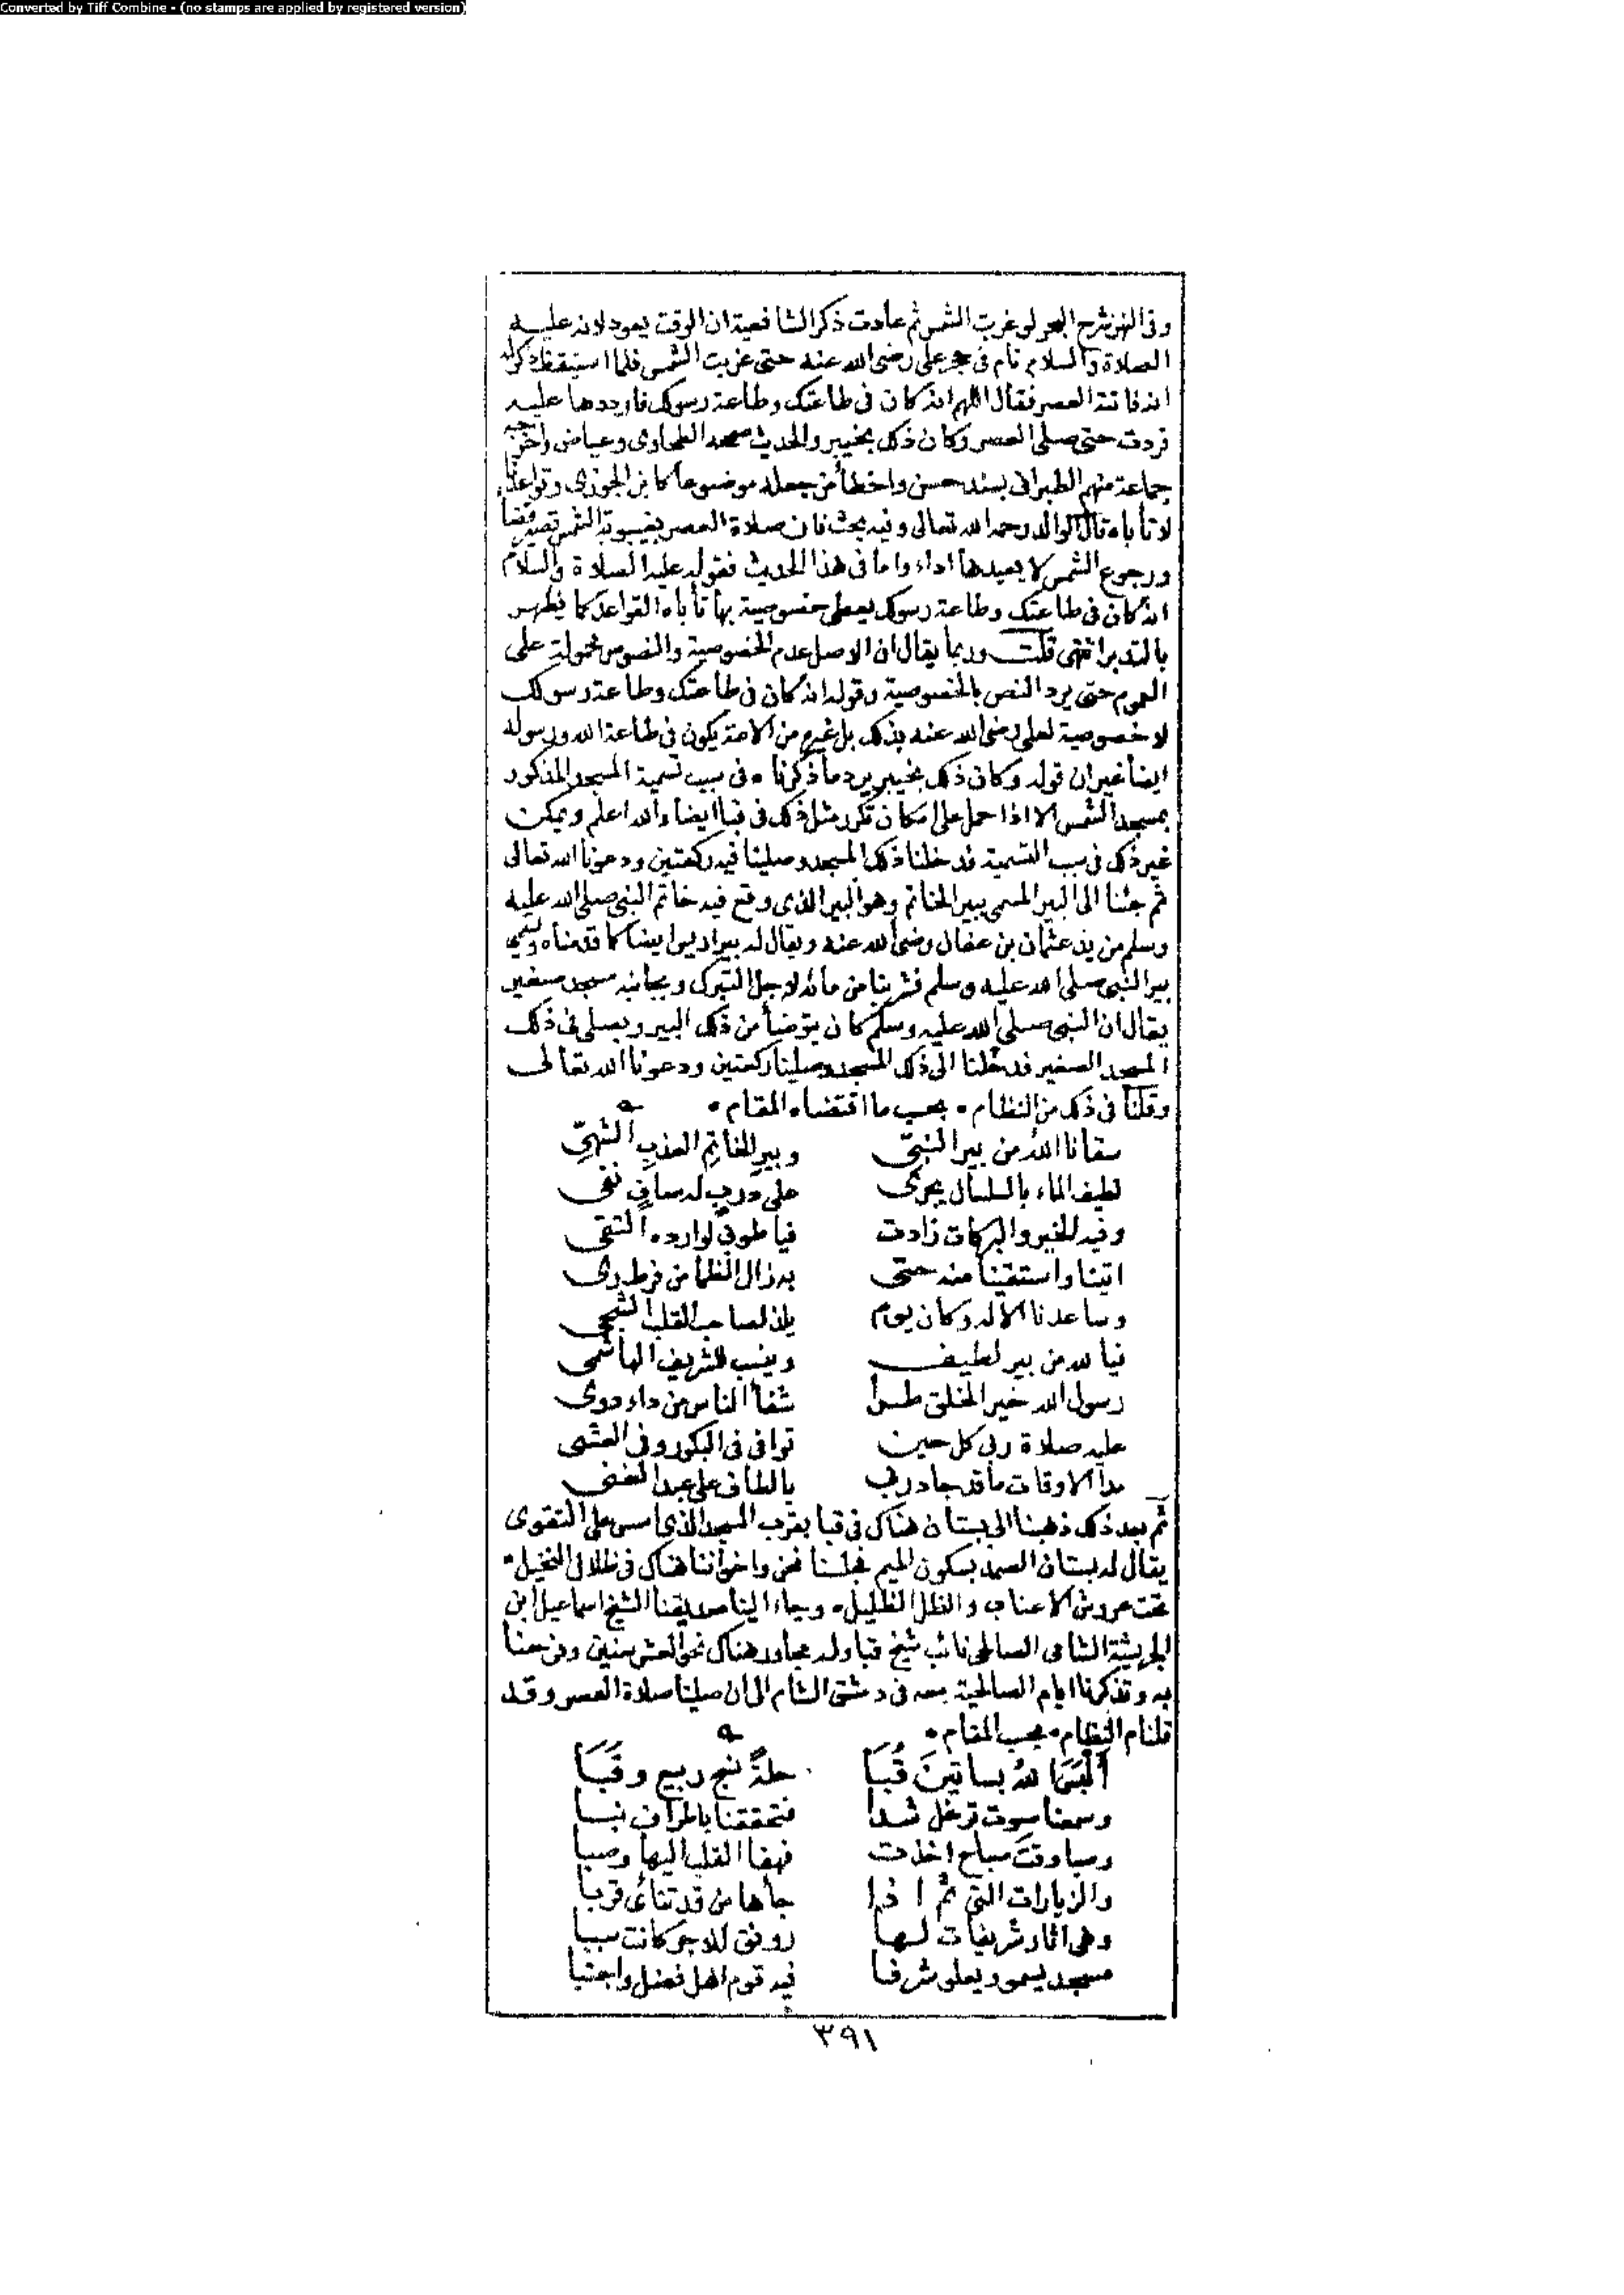 Converted by Tiff Combine - (no stamps are applied by registered version)
وفى النهر شرح البحر لو غربت الشمس ثم عادت ذكر الشافعية ان الوقت يعود لانه عليه
الصلاة والسلام نام فى حجر على رضى الله عنه حتى غربت الشمس فلما استيقظ ذكر له
انه فاتته العصر فقال اللهم انه كان فى طاعتك وطاعة رسولك فارددها عليه
فردت حتى صلى العصر وكان ذلك بخيبر والحديث صححه الطحاوى وعياض واخرجه
جماعة منهم الطبرانى بسند حسن واخطأ من جعله موضوعا كابن الجوزى وقواعدنا
لا تأباه قال الوالد رحمه الله تعالى وفيه بحث فان صلاة العصر بغيبوبة الشمس تصير قضا
ورجوع الشمس لا يعيدها اداء واما فى هذا الحديث فقوله عليه الصلاة والسلام
انه كان فى طاعتك وطاعة رسولك يعطى خصوصية بها تأباه القواعد كما يظهر
بالتدبر انتهى قلت وربما يقال ان الاصل عدم الخصوصية والنصوص محمولة على
العموم حتى يرد النص بالخصوصية وقوله انه كان فى طاعتك وطاعة رسولك
لا خصوصية لعلى رضى الله عنه بذلك بل غيره من الامة يكون فى طاعة الله ورسوله
ايضا غير ان قوله وكان ذلك بخيبر يرد ما ذكرنا ٠ فى سبب تسمية المسجد المذكور
بمسجد الشمس الا اذا حمل على امكان تكرر مثل ذلك فى قبا ايضا والله اعلم ويمكن
غير ذلك فى سبب التسمية فدخلنا ذلك المسجد وصلينا فيه ركعتين ودعونا الله تعالى
ثم جئنا الى البير المسمى ببير الخاتم وهو البير الذى وقع فيه خاتم النبى صلى الله عليه
وسلم من يد عثمان بن عفان رضى الله عنه ويقال له بير اريس ايضا كما قدمناه وتسمى
بير النبى صلى الله عليه وسلم فشربنا من مائه لاجل التبرك وبجانبه مسجد صغير
يقال ان النبى صلى الله عليه وسلم كان يتوضأ من ذلك البير ويصلى فى ذلك
المسجد الصغير فدخلنا الى ذلك المسجد وصلينا ركعتين ودعونا الله تعالى
وقلنا فى ذلك من النظام ٠ بحسب ما اقتضاه المقام ٠
سقانا الله من بير النبىّ وبير الخاتِم العذبِ الشهىِّ
لطيف الماء بالسلسال يجرى على درب له صافى نقى
وفيه الخير والبركات زادت فيا طوبى لوارده التقى
اتينا واستقينا منه حتى به زال الظما من فرط رى
وساعدنا الاله وكان يوم يلذ لصاحب القلب الشجى
فيا لله من بير لطيف وينسب للشريف الهاشمى
رسول الله خير الخلق طرا شفا الناس من داء دوى
عليه صلاة ربى كل حين توافى فى البكور وفى العشى
مدا الاوقات ما قد جاد ربى بالطاف على عبد الغنى
ثم بعد ذلك ذهبنا الى بستان هناك فى قبا بقرب المسجد الذى اسس على التقوى
يقال له بستان الصمد بسكون الميم فجلسنا نحن واخواننا هناك فى ظلال النخيل ٠
تحت عروش الاعناب والظل الظليل ٠ وجاء الينا صديقنا الشيخ اسماعيل ابن
الشامى الصالحى نائب شيخ قبا وله مجاور هناك نحو العشر سنين وفرحنا
به وتذكرنا ايام الصالحية معه فى دمشق الشام الى ان صلينا صلاة العصر وقد
قلنا من النظام ٠ بحسب المقام ٠
اَلْبَسَ الله بساتينَ قُبَا حلةً نسج ربيع وقَبَا
وسمعنا صوت شدا فتحققنا باطراف نبا
وصبا وقت صباح اخذت فهفا القلب اليها وصبا
والزيارات التى ثم اذا جاها من قد تنائى قربا
وهى اثار شريفات لها رونق للاجر كانت سببا
مسجد يسمو ويعلو شرفا فيه قوم اهل فضل واجتبا
٣٩١